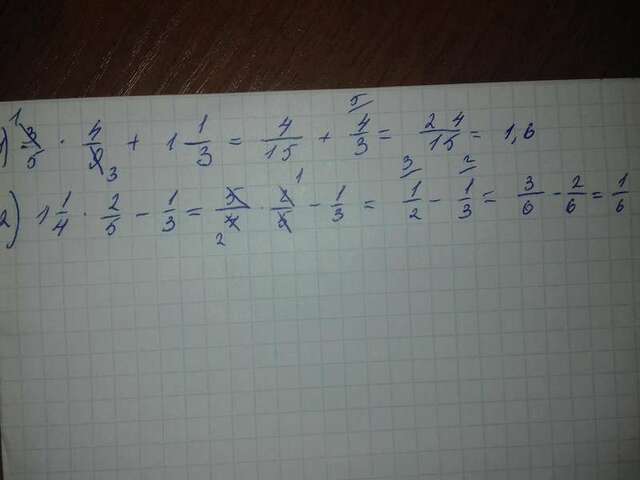 1) 3/5 · 4/9 + 1 1/3 = 4/15 + 4/3 = 24/15 = 1,6
2) 1 1/4 · 2/5 - 1/3 = 5/4 · 2/5 - 1/3 = 1/2 - 1/3 = 3/6 - 2/6 = 1/6